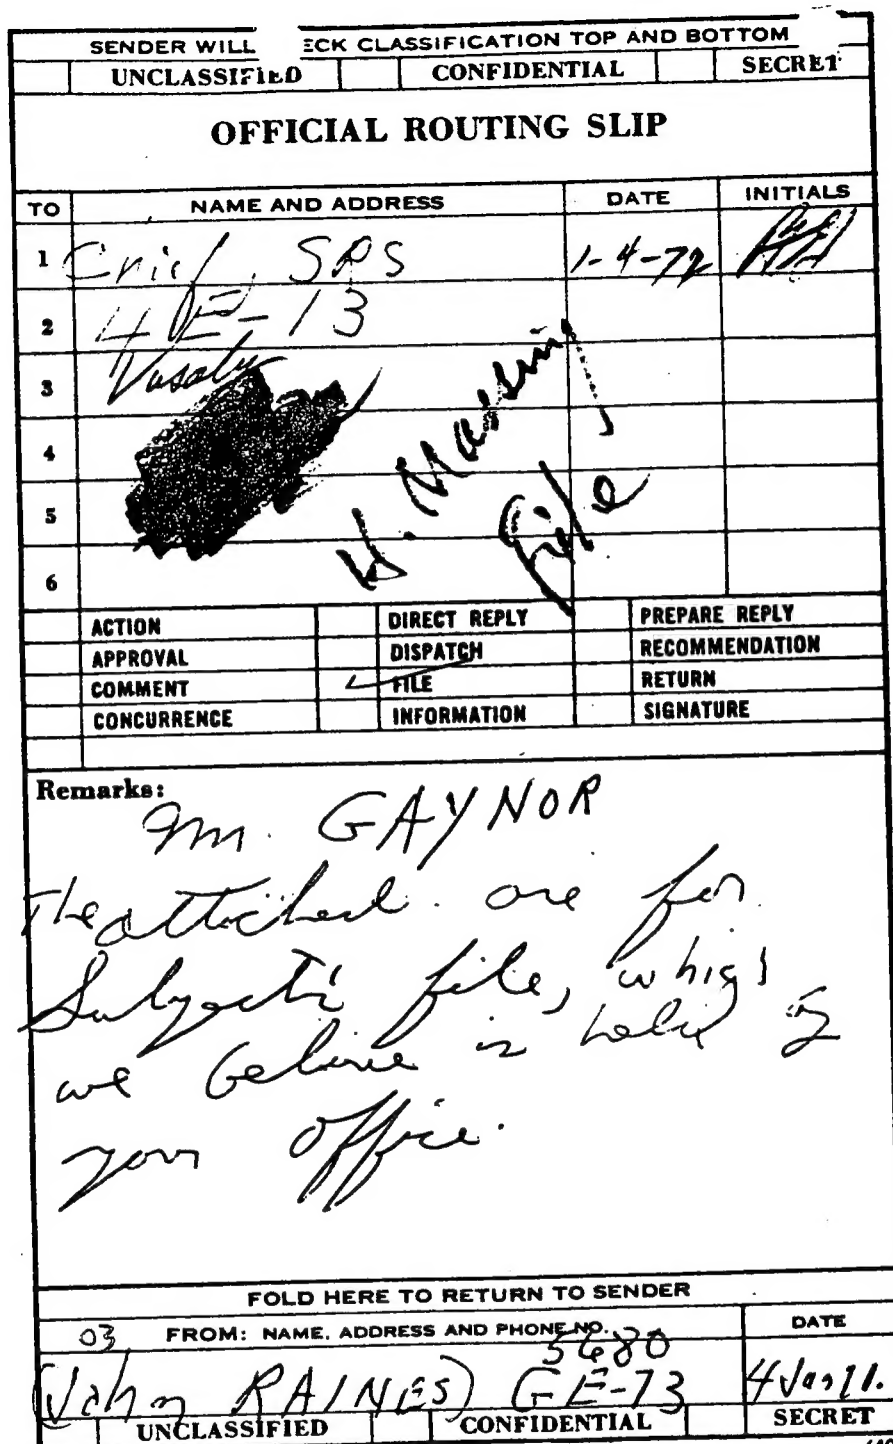 SENDER WILL ECK CLASSIFICATION TOP AND BOTTOM
UNCLASSIFIED CONFIDENTIAL SECRET
OFFICIAL ROUTING SLIP
TO NAME AND ADDRESS DATE INITIALS
1 Chief, SRS 1-4-72
2 4E-13
3
4
5
6
H. Massing
File
ACTION DIRECT REPLY PREPARE REPLY
APPROVAL DISPATCH RECOMMENDATION
COMMENT FILE RETURN
CONCURRENCE INFORMATION SIGNATURE
Remarks:
Mr. GAYNOR
The attached are for
Subject's file, which
we believe is held by
your office.
FOLD HERE TO RETURN TO SENDER
03 FROM: NAME, ADDRESS AND PHONE NO. DATE
5680
(John RAINES) GE-73 4 Jan
UNCLASSIFIED CONFIDENTIAL SECRET